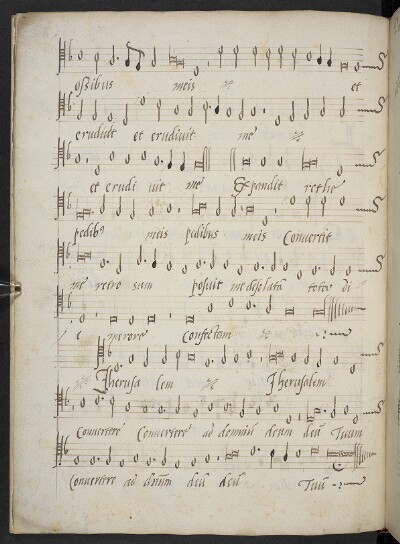 ossibus meis et
erudiuit et erudiuit me
et erudi uit me Expandit rethe
pedib9 meis pedibus meis Conuertit
me retro sum posuit me desolatā tota di
e merore Confectam
Jherusa lem Jherusalem
Conuertere Conuertere ad dominū deum deū Tuum
Conuertere ad dnūm deū deū Tuū